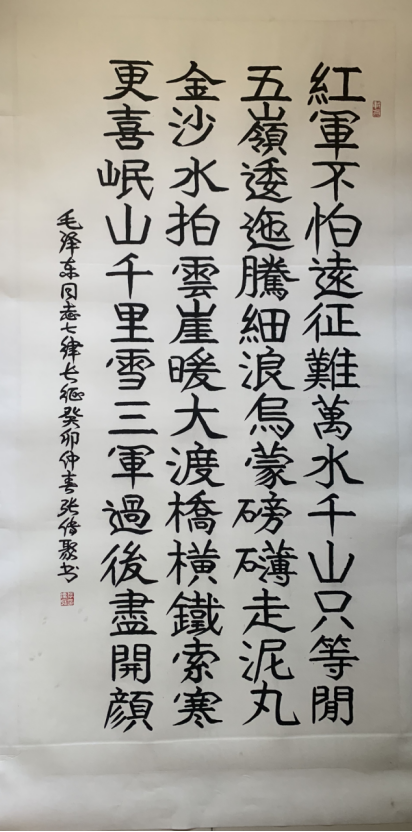 紅軍不怕遠征難萬水千山只等閒
五嶺逶迤騰細浪烏蒙磅礴走泥丸
金沙水拍雲崖暖大渡橋橫鐵索寒
更喜岷山千里雪三軍過後盡開顔
毛泽东同志七律长征癸卯仲春张俊聚书